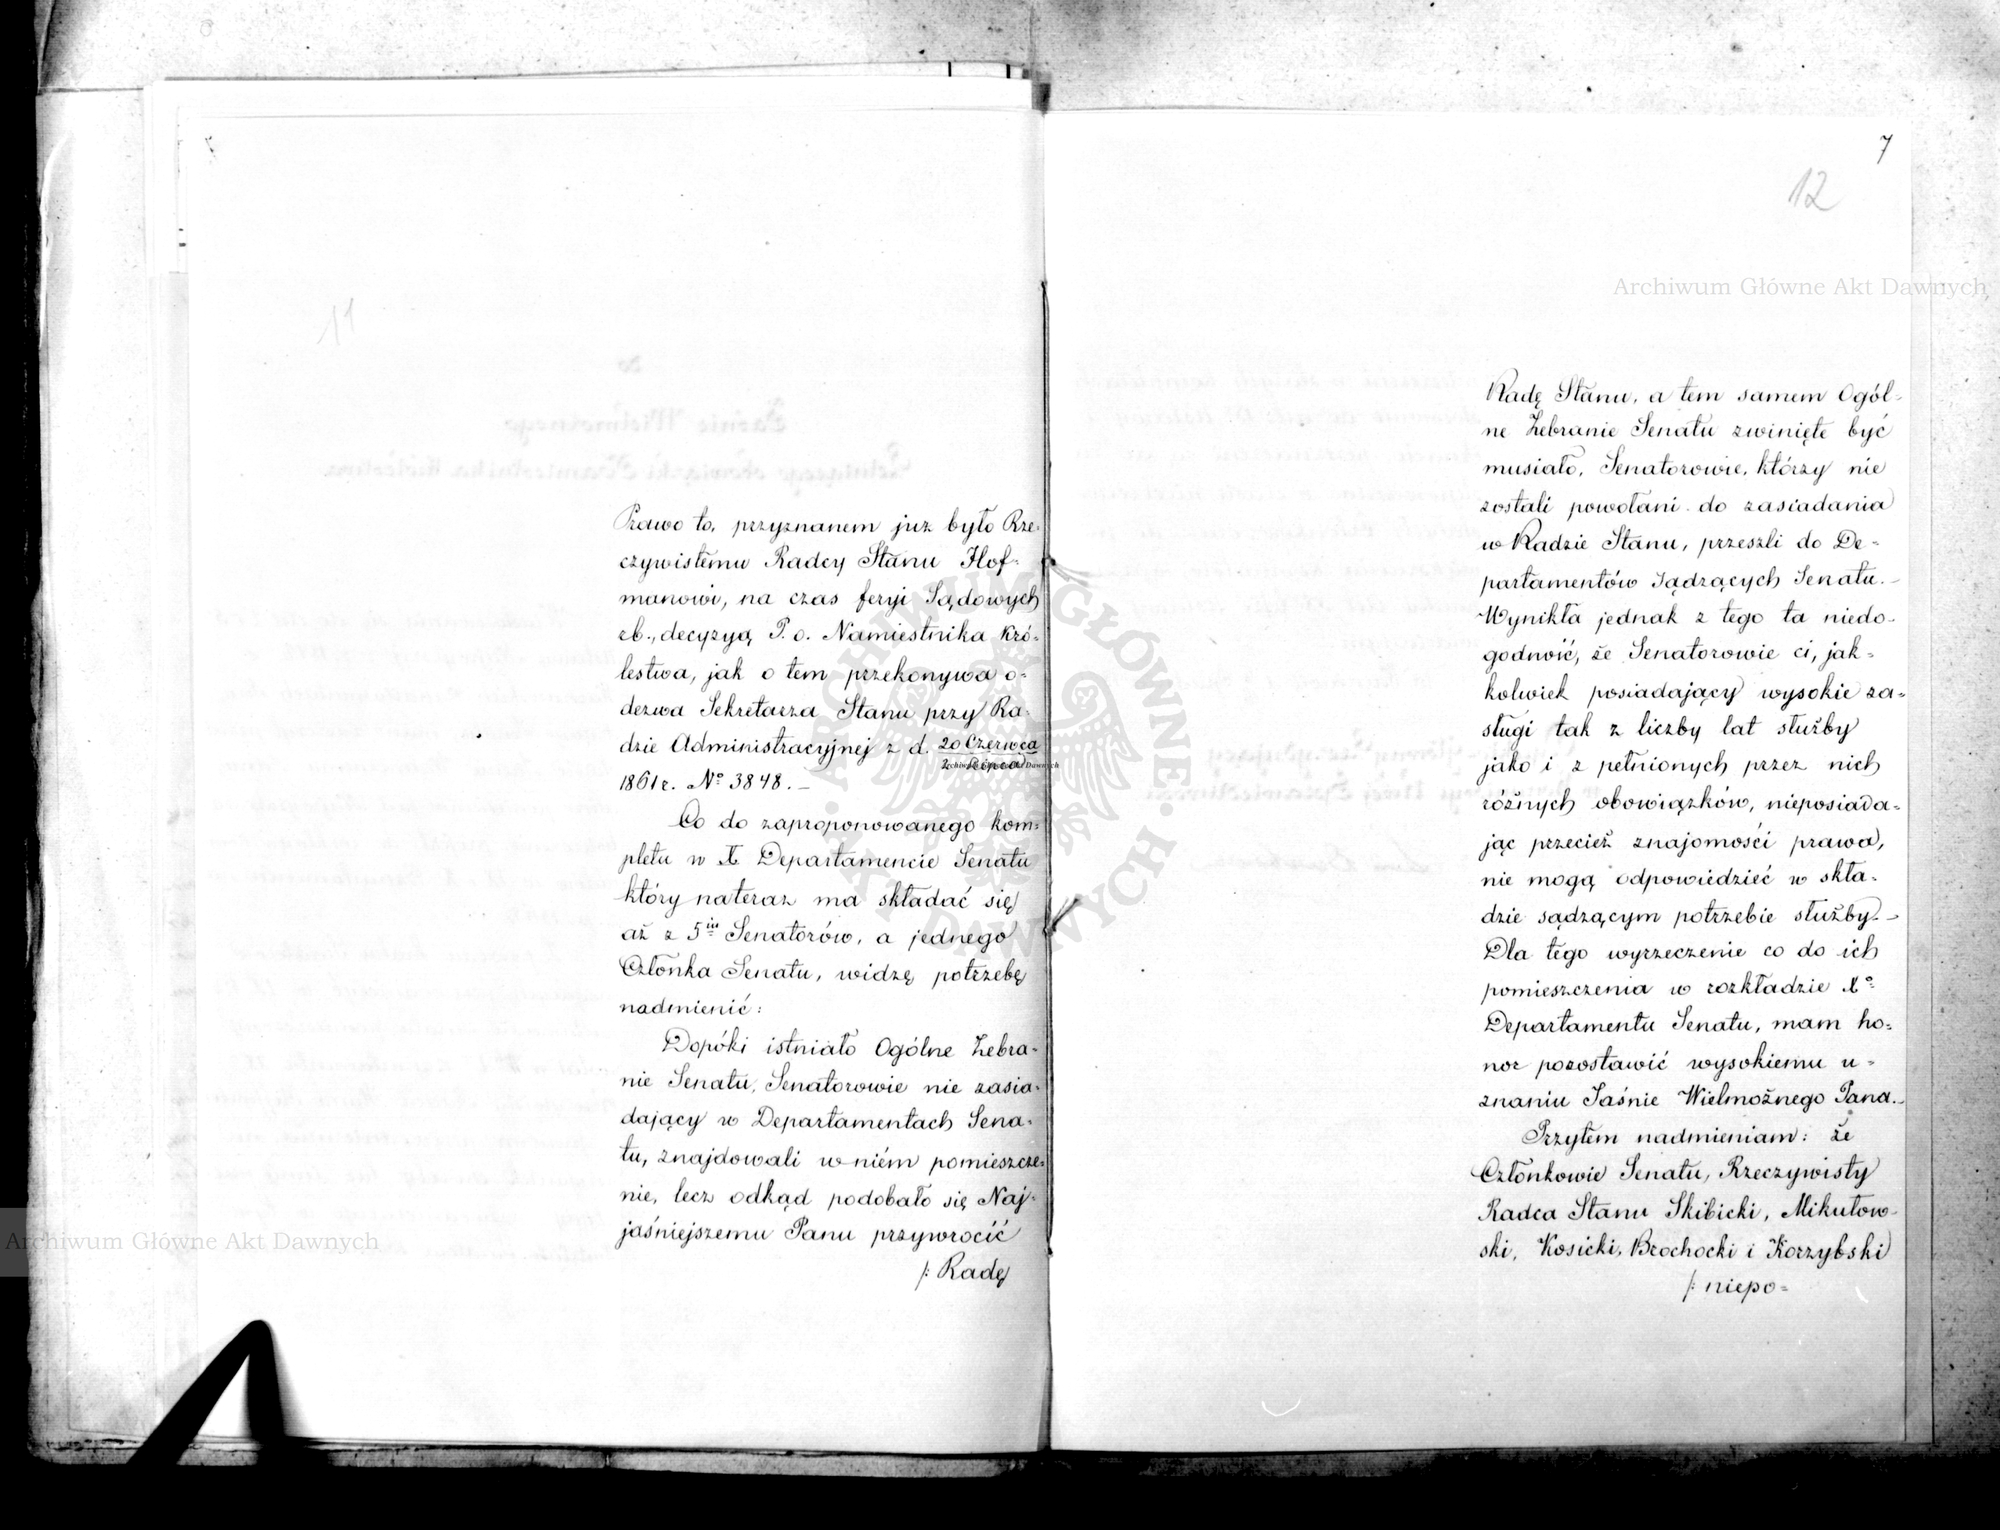 11
Prawo to, przyznanem już było Rze-
czywistemu Radcy Stanu Hof-
manowi, na czas feryi Sądowych
rb., decyzyą P. o. Namiestnika Kró-
lestwa, jak o tem przekonywa o-
dezwa Sekretarza Stanu przy Ra-
dzie Administracyjnej z d. 20 Czerwca
2 Lipca
1861 r. No 3848. –
Co do zaproponowanego kom-
pletu w X. Departamencie Senatu
który nateraz ma składać się
aż z 5iu Senatorów, a jednego
Członka Senatu, widzę potrzebę
nadmienić:
Dopóki istniało Ogólne Zebra-
nie Senatu, Senatorowie nie zasia-
dający w Departamentach Sena-
tu, znajdowali w niém pomieszcze-
nie, lecz odkąd podobało się Naj-
jaśniejszemu Panu przywrócić
/: Radę
7
12
Radę Stanu, a tem samem Ogól-
ne Zebranie Senatu zwinięte być
musiało, Senatorowie, którzy nie
zostali powołani do zasiadania
w Radzie Stanu, przeszli do De-
partamentów Sądzących Senatu. –
Wynikła jednak z tego ta niedo-
godność, że Senatorowie ci, jak-
kolwiek posiadający wysokie za-
sługi tak z liczby lat służby
jako i z pełnionych przez nich
różnych obowiązków, nieposiada-
jąc przecież znajomości prawa,
nie mogą odpowiedzieć w skła-
dzie sądzącym potrzebie służby. –
Dla tego wyrzeczenie co do ich
pomieszczenia w rozkładzie Xo
Departamentu Senatu, mam ho-
nor pozostawić wysokiemu u-
znaniu Jaśnie Wielmożnego Pana. –
Przytem nadmieniam: że
Członkowie Senatu, Rzeczywisty
Radca Stanu Skibicki, Mikułow-
ski, Kosicki, Brochocki i Korzybski
/: niepo-
Archiwum Główne Akt Dawnych
Archiwum Główne Akt Dawnych
Archiwum Główne Akt Dawnych
ARCHIWUM GŁÓWNE AKT DAWNYCH